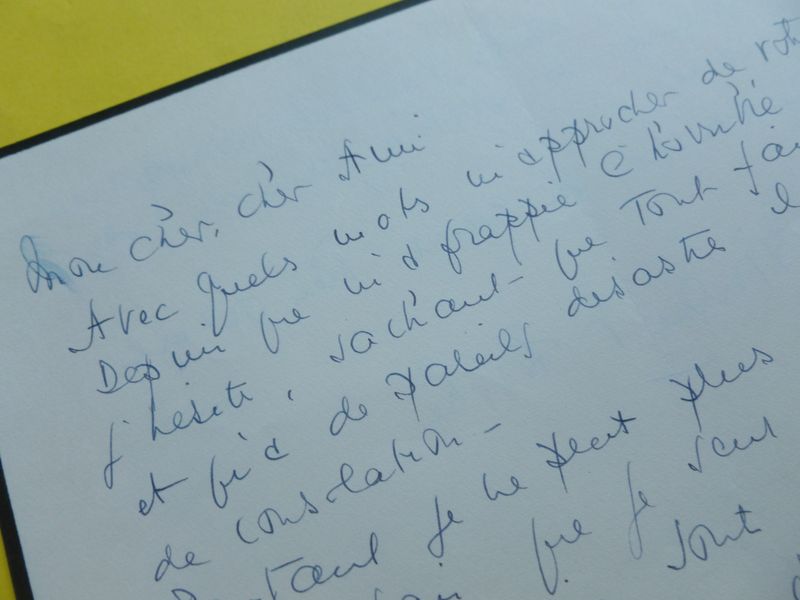 Mon cher, cher Ami
Avec quels mots m'approcher de
Depuis que m'a frappée
j'hésite, sachant que tout
et qu'à de pareils désastre
de consolation -
Pourtant je ne peut plus
que je seul
sont